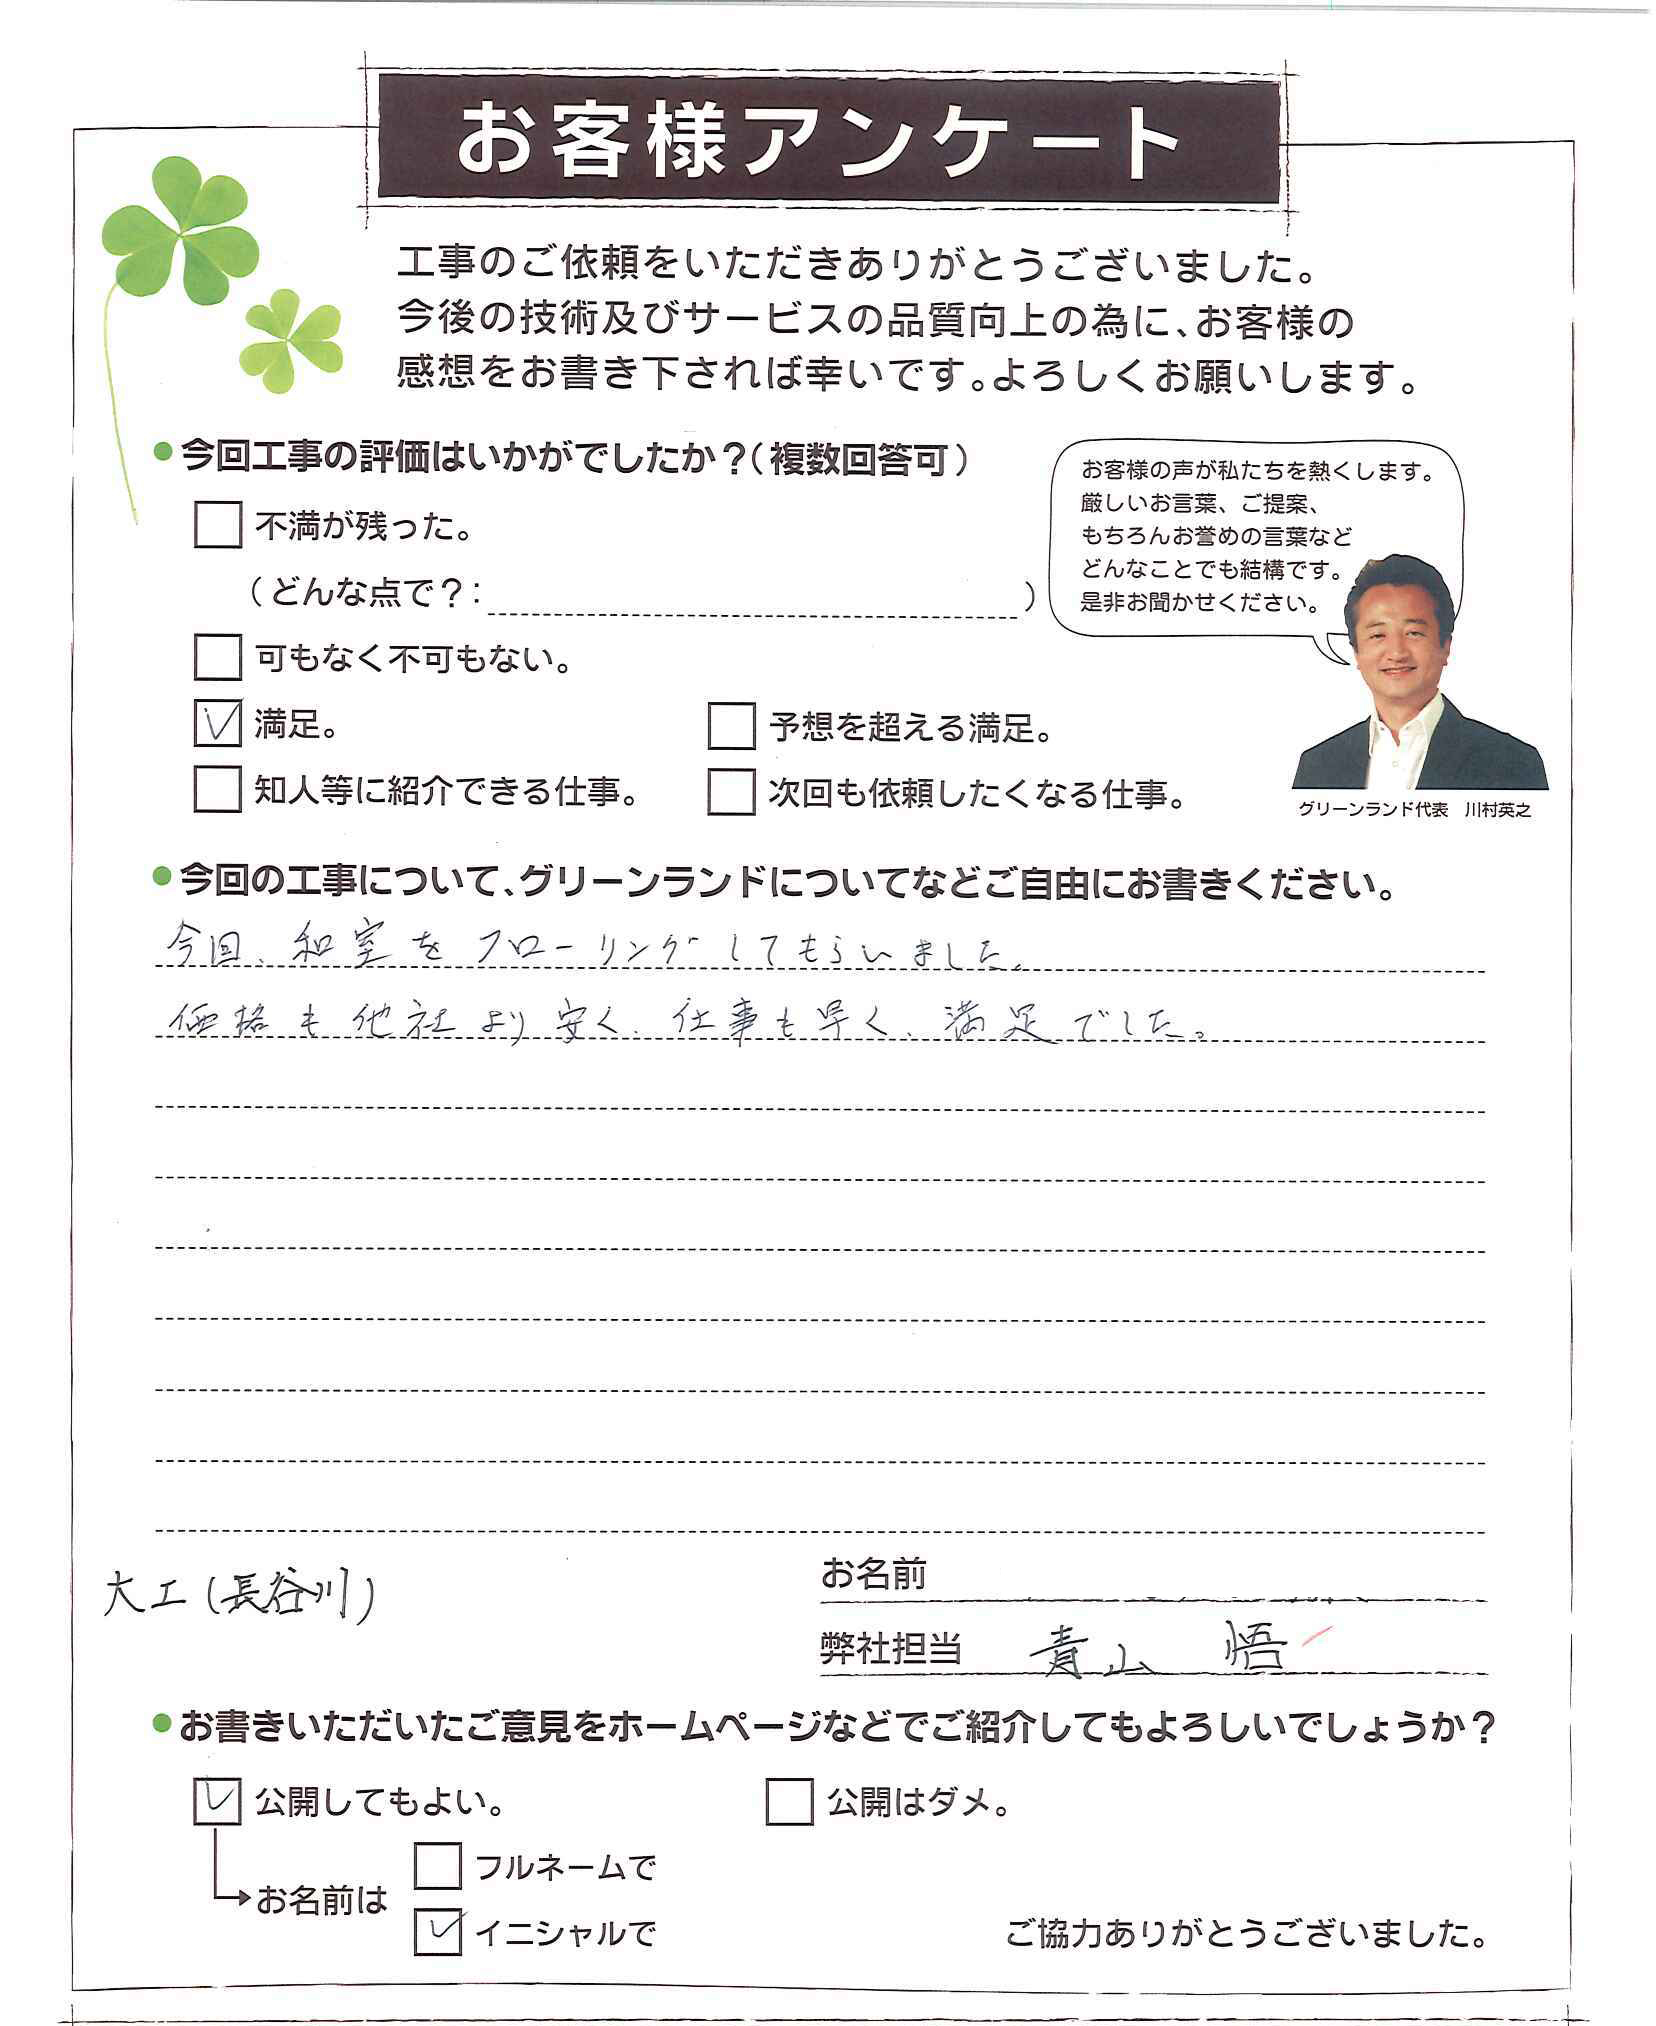 お客様アンケート
工事のご依頼をいただきありがとうございました。
今後の技術及びサービスの品質向上の為に、お客様の
感想をお書き下されば幸いです。よろしくお願いします。
●今回工事の評価はいかがでしたか？（複数回答可）
お客様の声が私たちを熱くします。
厳しいお言葉、ご提案、
もちろんお誉めの言葉など
どんなことでも結構です。
是非お聞かせください。
不満が残った。
（どんな点で？： ）
可もなく不可もない。
満足。 予想を超える満足。
知人等に紹介できる仕事。 次回も依頼したくなる仕事。
グリーンランド代表 川村英之
●今回の工事について、グリーンランドについてなどご自由にお書きください。
今回、和室をフローリングしてもらいました。
価格も他社より安く、仕事も早く、満足でした。
大工（長谷川）
お名前
弊社担当 青山 悟
●お書きいただいたご意見をホームページなどでご紹介してもよろしいでしょうか？
公開してもよい。 公開はダメ。
フルネームで
お名前は
イニシャルで
ご協力ありがとうございました。